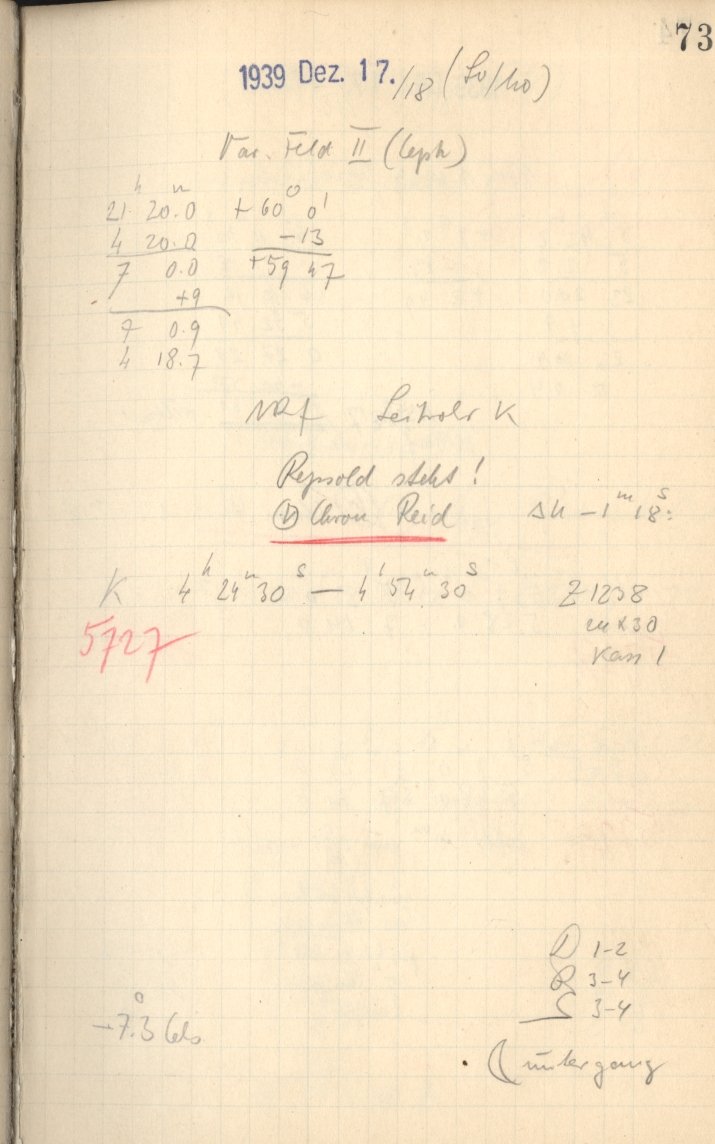 73
1939 Dez. 17./18 (
Var. Feld II (Ceph)
21h 20m.0 +60° 0'
4 20.0 -13
7 0.0 +59 47
+9
7 0.9
4 18.7
Leitrohr K
Repsold steht!
Chron Reid Δu -1m 18s:
K 4h 24m 30s — 4h 54m 30s Z 1238
5727 30
Kass 1
D 1-2
R 3-4
S 3-4
-7.°3 Cels
untergang